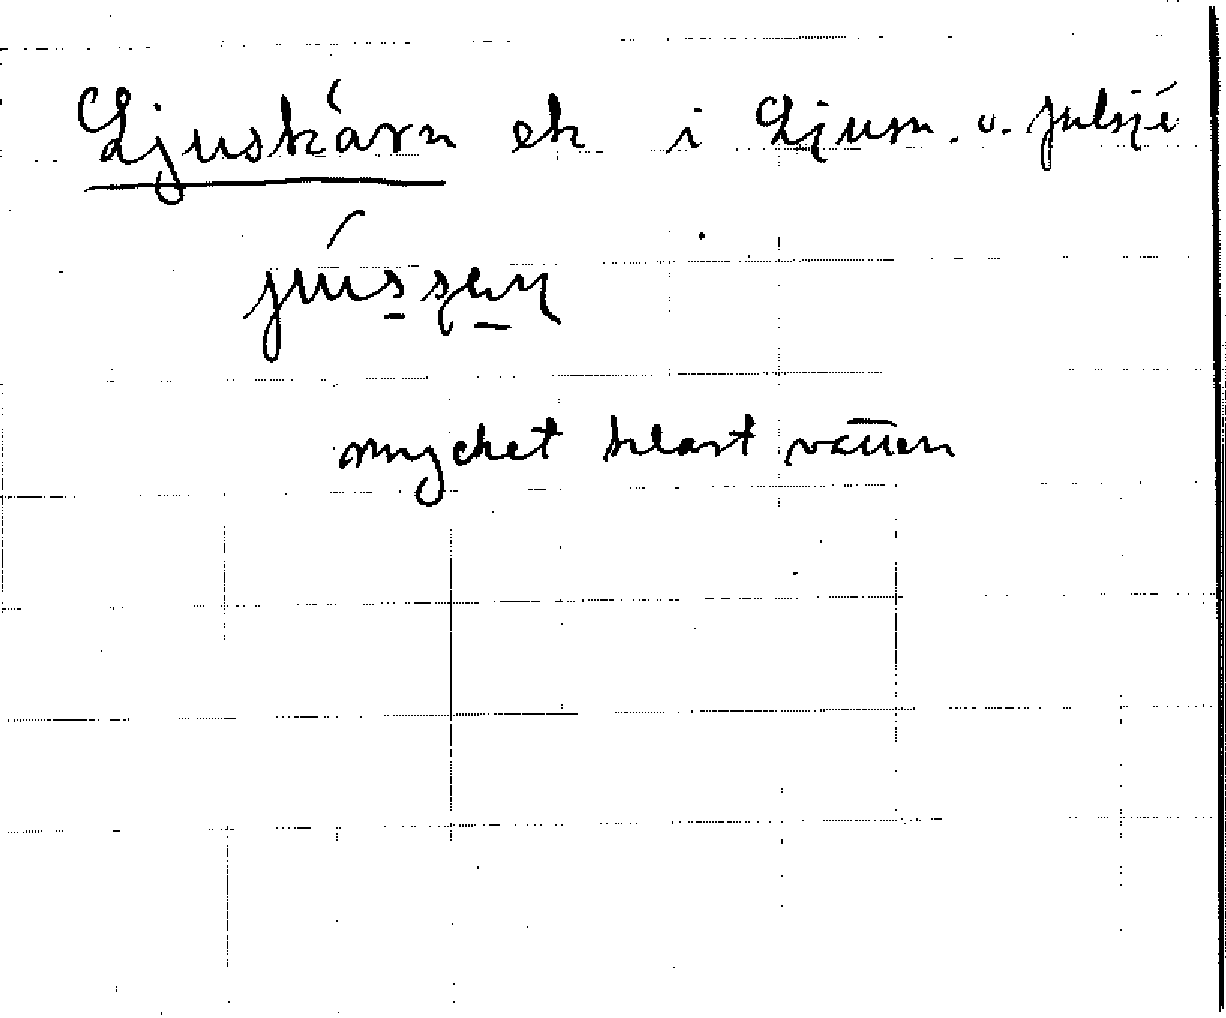 Ljuskärn ek i Ljusn. v. julsjö
jússen
mycket klart vatten